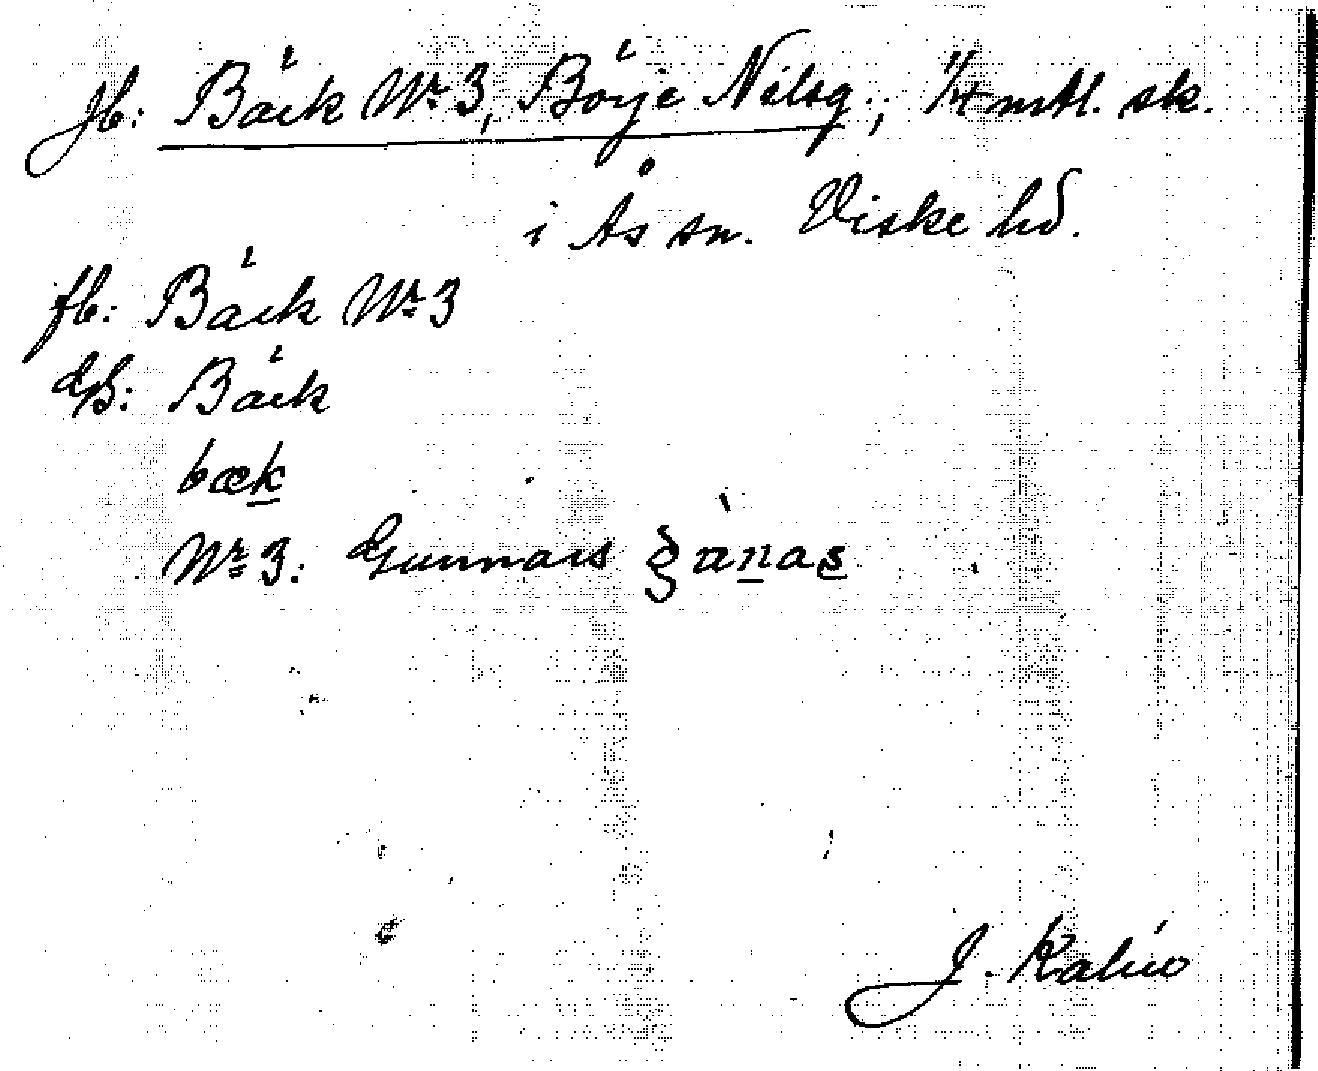 Jb: Bäck Nr 3, Börje Nilsg., 1/4 mtl. sk.
i Ås sn. Viske hd.
fb: Bäck Nr 3
Gb: Bäck
bæk
Nr 3: Gunnars
J. Kalén